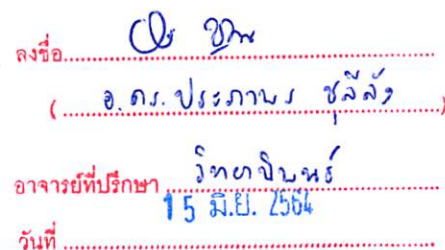 ลงชื่อ
(อ.ดร.ประภาพร ชุลีลัง)
อาจารย์ที่ปรึกษา วิทยานิพนธ์
15 มิ.ย. 2564
วันที่